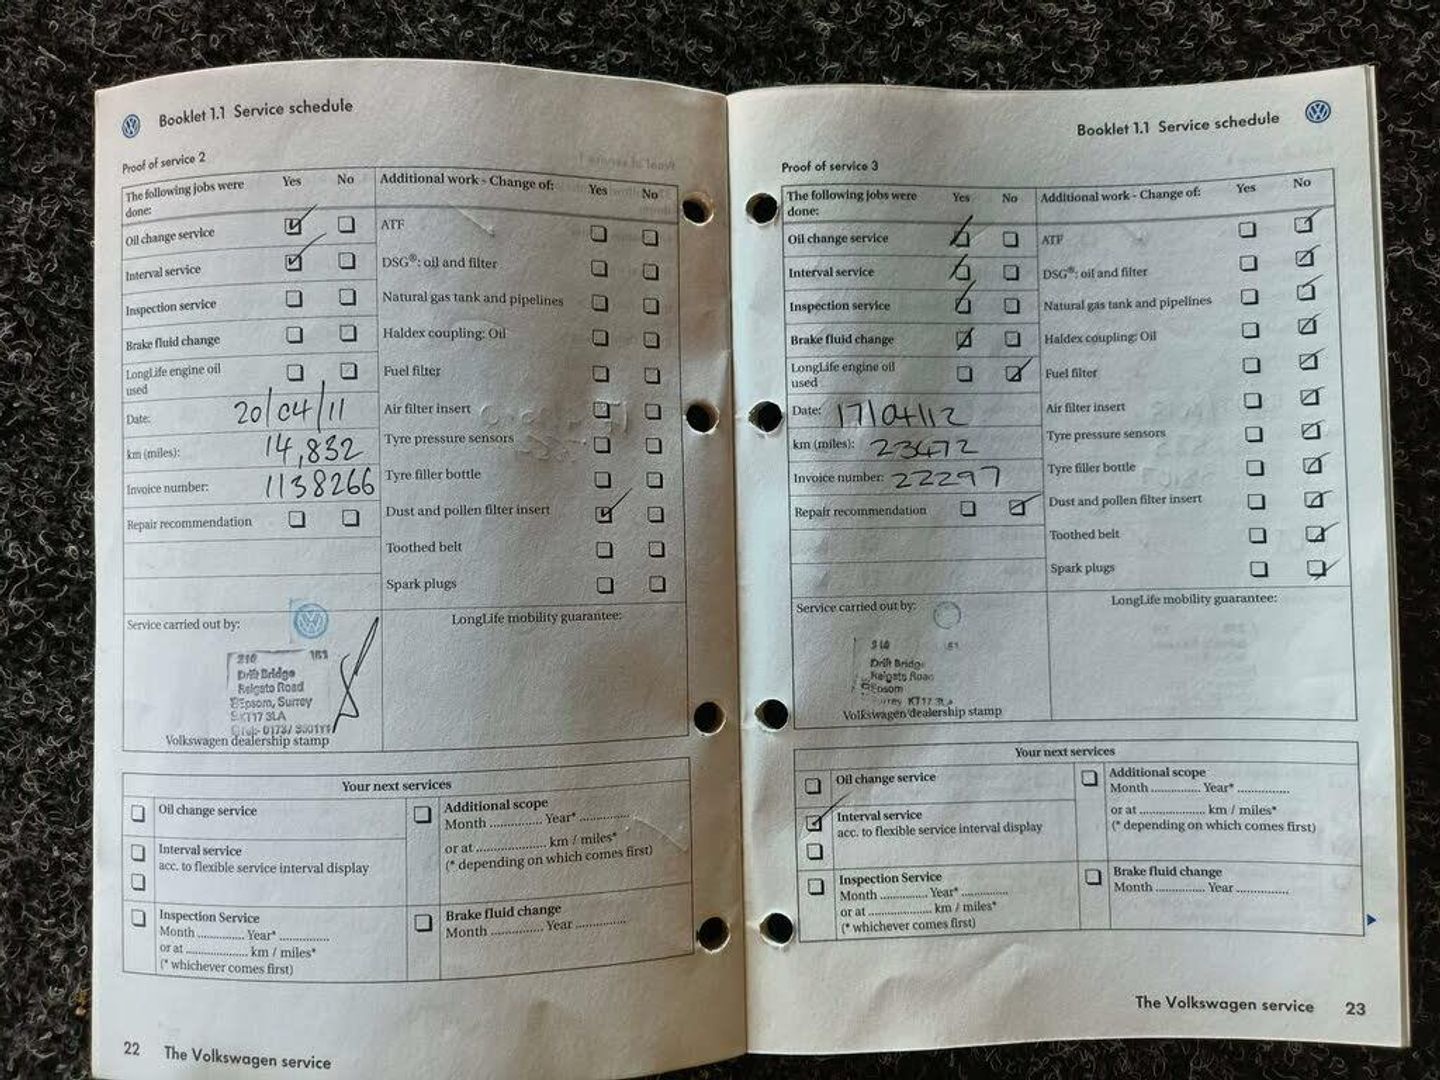 Booklet 1.1 Service schedule
Proof of service 2
The following jobs were done: Yes No Additional work - Change of: Yes No
Oil change service ATF
Interval service DSG®: oil and filter
Inspection service Natural gas tank and pipelines
Brake fluid change Haldex coupling: Oil
LongLife engine oil used Fuel filter
Date: 20/04/11 Air filter insert
km (miles): 14,832 Tyre pressure sensors
Invoice number: 1138266 Tyre filler bottle
Repair recommendation Dust and pollen filter insert
Toothed belt
Spark plugs
Service carried out by: LongLife mobility guarantee:
210 161
Drift Bridge
Reigate Road
Epsom, Surrey
KT17 3LA
Volkswagen dealership stamp
Your next services
Oil change service
Additional scope
Month .............. Year* ..............
or at .................... km / miles*
(* depending on which comes first)
Interval service
acc. to flexible service interval display
Inspection Service
Month .............. Year* ..............
or at .................... km / miles*
(* whichever comes first)
Brake fluid change
Month .............. Year ..............
22 The Volkswagen service
Booklet 1.1 Service schedule
Proof of service 3
The following jobs were done: Yes No Additional work - Change of: Yes No
Oil change service ATF
Interval service DSG®: oil and filter
Inspection service Natural gas tank and pipelines
Brake fluid change Haldex coupling: Oil
LongLife engine oil used Fuel filter
Date: 17/04/12 Air filter insert
km (miles): 23472 Tyre pressure sensors
Invoice number: 22297 Tyre filler bottle
Repair recommendation Dust and pollen filter insert
Toothed belt
Spark plugs
Service carried out by: LongLife mobility guarantee:
Drift Bridge
Reigate Road
Epsom
KT17
Volkswagen dealership stamp
Your next services
Oil change service
Additional scope
Month .............. Year* ..............
or at .................... km / miles*
(* depending on which comes first)
Interval service
acc. to flexible service interval display
Inspection Service
Month .............. Year* ..............
or at .................... km / miles*
(* whichever comes first)
Brake fluid change
Month .............. Year ..............
The Volkswagen service 23